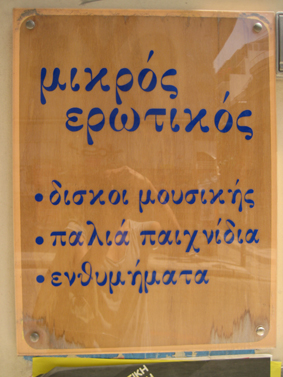 μικρός
ερωτικός
• δισκοι μουσικής
• παλιά παιχνίδια
• ενθυμήματα